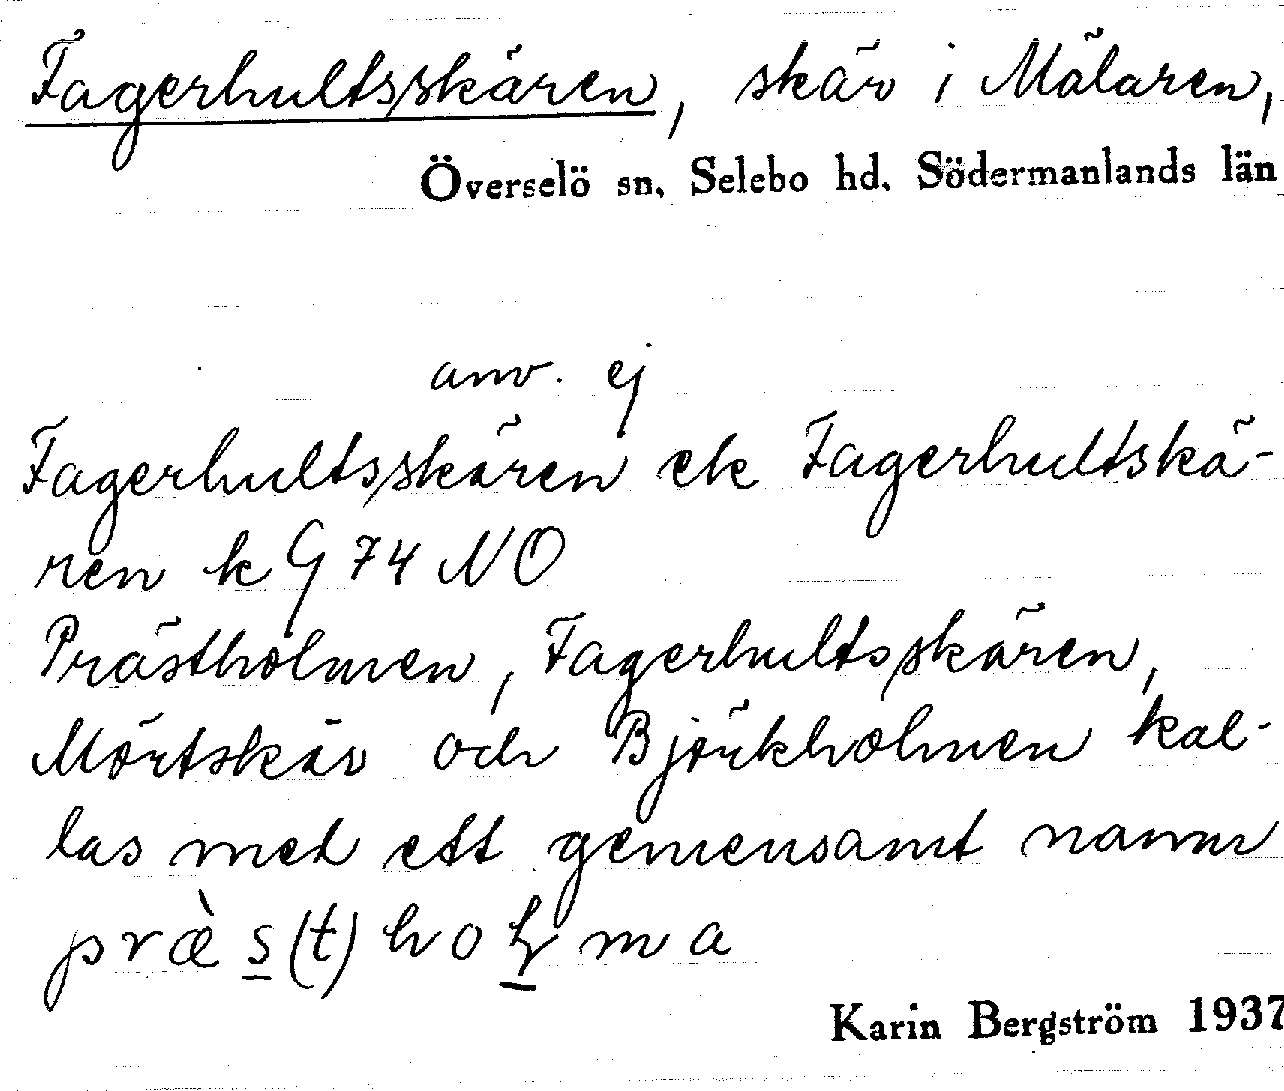 Fagerhults/skären, skär i Mälaren,
Överselö sn. Selebo hd. Södermanlands län
anv. ej
Fagerhults/skären ek Fagerhultskä-
ren k G 74 NO
Prästholmen, Fagerhults/skären,
Mörtskär och Björkholmen kal-
las med ett gemensamt namn
præ̀s̲(t)hoɮ̲ma
Karin Bergström 1937